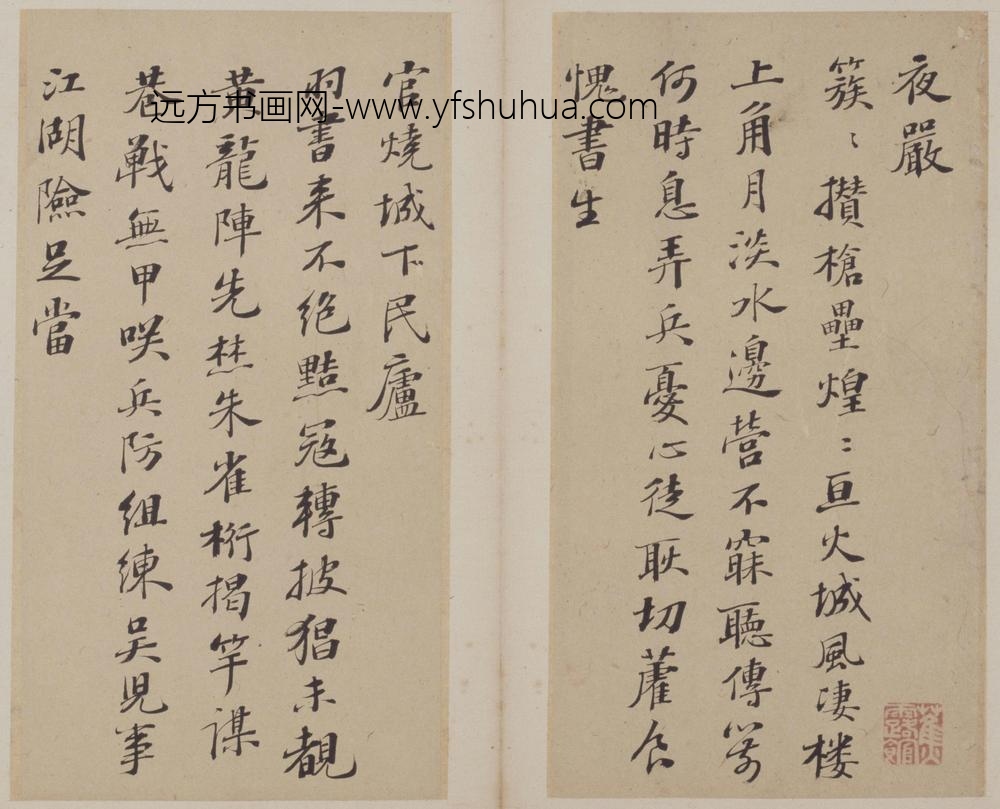 夜嚴
簇〻攢槍壘煌〻亘火城風凄楼
上角月淡水邊營不寐聽傳
何時息弄兵憂心徒耿切藿食
愧書生
官燒城下民廬
羽書来不絶黠寇轉披猖未覩
黃龍陣先焚朱雀桁揭竿謀
戰無甲咲兵防組練吳児事
江湖險足當
远方书画网-www.yfshuhua.com